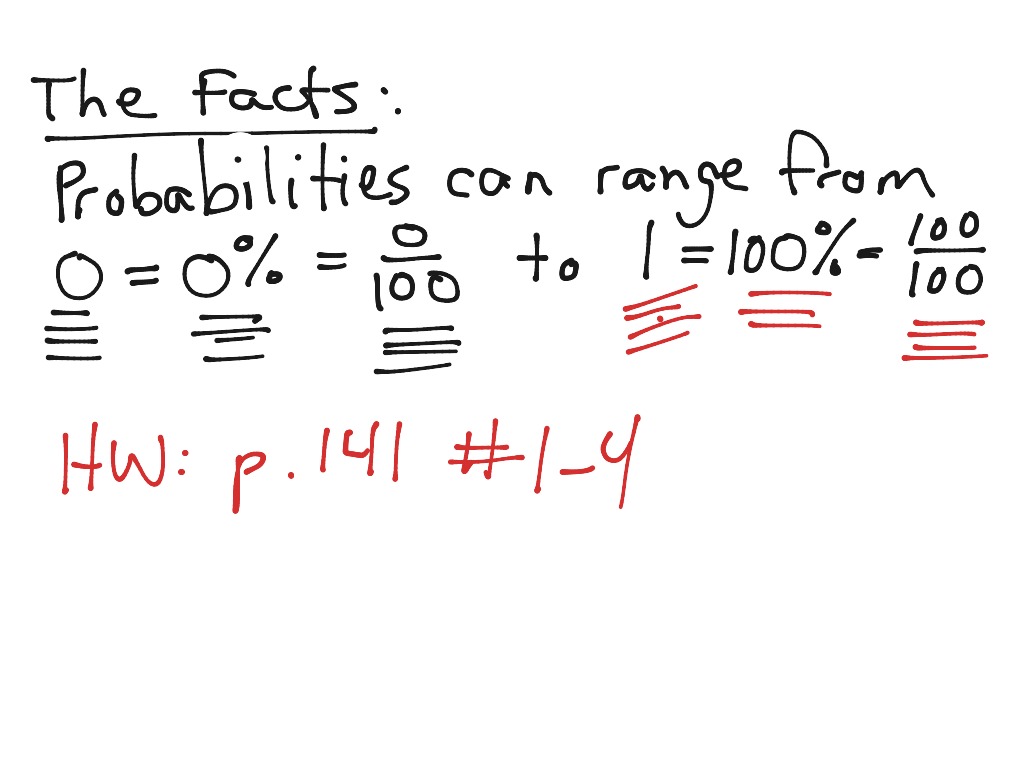 The Facts:
Probabilities can range from
0 = 0% = 0/100 to 1 = 100% = 100/100
HW: p. 141 #1-4